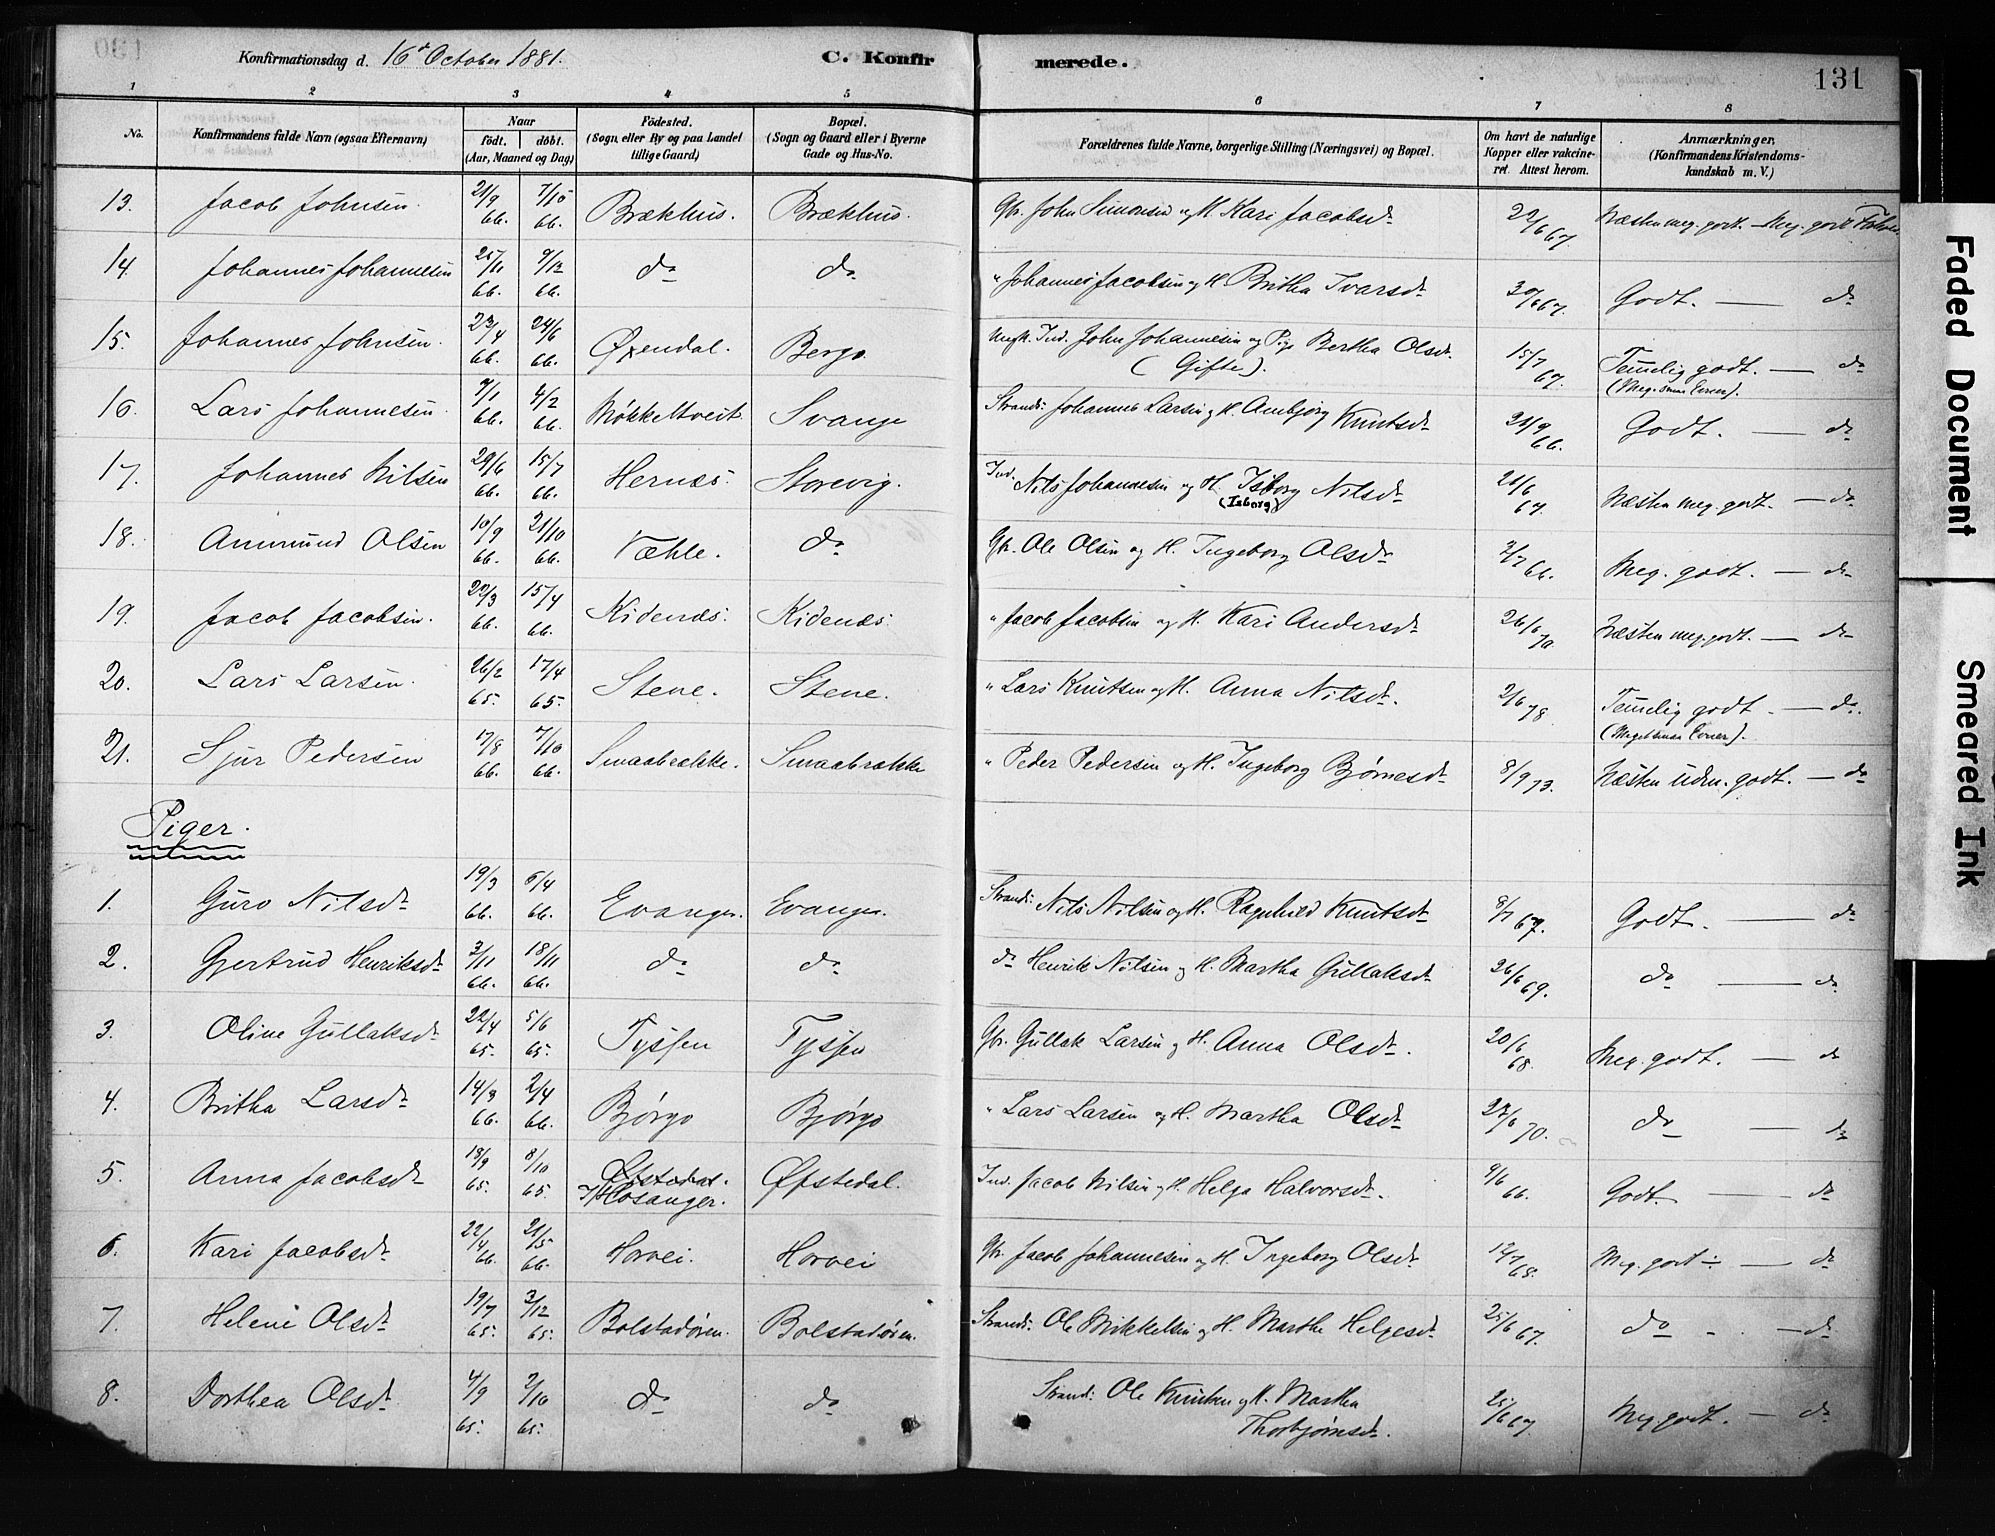 Konfirmationsdag d. 16d October 1881.
C. Konfirmerede.
131
1 2 3 4 5 6 7 8
No.
Konfirmandens fulde Navn (ogsaa Efternavn)
Naar
födt. döbt.
(Aar, Maaned og Dag)
Födested.
(Sogn eller By og paa Landet
tillige Gaard)
Bopæl.
(Sogn og Gaard eller i Byerne
Gade og Hus-No.
Forældrenes fulde Navne, borgerlige Stilling (Næringsvei) og Bopæl.
Om havt de naturlige
Kopper eller vakcine-
ret. Attest herom.
Anmærkninger,
(Konfirmandens Kristendoms-
kundskab m. V.)
13. Jacob Johnsen. 21/9 66. 7/10 66. Brækhus. Brækhus. Gbr. John Simonsen og H. Kari Jacobsdr 22/6 67. Næsten meg. godt. — Meg. godt Forhold
14. Johannes Johannesen 25/11 66. 9/12 66. do do " Johannes Jacobsen og H. Britha Ivarsdr 30/6 67. Godt. — do
15. Johannes Johnsen. 23/4 66. 24/6 66. Øxendal. Bergo. Ungk. Ind. John Johannesen og Pige Bertha Olsdr.
(Gifte). 15/7 67. Temelig godt. — do
(Meg. smaa Evner).
16. Lars Johannesen. 9/1 66. 4/2 66. Mökkeltveit Evanger Strands: Johannes Larsen og H. Ambjörg Knutsdr 21/9 66. Godt. — do
17. Johannes Nilsen 29/6 66. 15/7 66. Hernes. Storevig. Ind. Nils Johannesen og H. Isborg Nilsdr
(Isborg) 21/6 67. Næsten meg. godt. — do
18. Ammund Olsen 10/9 66. 21/10 66. Væhle. do Gbr. Ole Olsen og H. Ingeborg Olsdr 2/7 66. Meg. godt. — do
19. Jacob Jacobsen. 22/3 66. 15/4 66. Kidenæs. Kidenæs. " Jacob Jacobsen og H. Kari Andersdr 26/6 70. Næsten meg. godt. — do
20. Lars Larsen. 26/2 65. 17/4 65. Stene. Stene. " Lars Knutsen og H. Anna Nilsdr. 2/6 78. Temelig godt. — do.
(Meget smaa Evner).
21. Sjur Pedersen 17/8 66. 7/10 66. Smaabrække. Smaabrække " Peder Pedersen og H. Ingeborg Bjørnesdr 8/9 73. Næsten udm. godt. — do
Piger.
1. Guro Nilsdr 19/3 66. 6/4 66. Evanger. Evanger. Strands: Nils Nilsen og H. Ragnhild Knutsdr 8/7 67. Godt. — do
2. Gjertrud Henriksdr 3/11 66. 18/11 66. do do do Henrik Nilsen og H. Martha Gullaksdr 26/6 69. do — do
3. Oline Gullaksdr 22/4 65. 5/6 65. Tyssen Tyssen Gbr. Gullak Larsen og H. Anna Olsdr. 20/6 68. Meg. godt. — do
4. Britha Larsdr 14/3 66. 2/4 66. Bjørgo Bjørgo " Lars Larsen og H. Martha Olsdr 27/6 70. do — do
5. Anna Jacobsdr 18/9 65. 8/10 65. Øfstedal.
i Hosanger. Øfstedal. Ind. Jacob Nilsen og H. Helga Halvorsdr. 9/6 66. Godt — do
6. Kari Jacobsdr 22/4 66. 21/5 66. Horvei. Horvei Gbr. Jacob Johannesen og H. Ingeborg Olsdr 12/7 68. Meg. godt — do
7. Helene Olsdr 19/7 65. 3/12 65. Bolstadøren. Bolstadøren. Strands: Ole Mikkelsen og H. Marthe Helgesdr 25/6 67. do — do
8. Dorthea Olsdr 4/9 65. 2/10 65. do do Strand: Ole Knutsen og H. Martha
Thorbjørnsdr. 25/6 67. Meg godt. — do
Faded Document
Smeared Ink